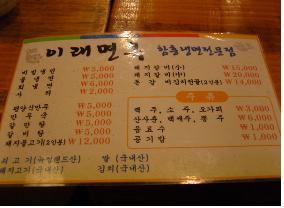 이래면옥 함흥냉면전문점
비빔냉면 ₩5,000
물냉면 ₩5,000
회냉면 ₩5,000
사리 ₩2,000
평양식만두 ₩5,000
만두국 ₩5,000
갈비탕 ₩5,000
돼지불고기(2인분) ₩12,000
돼지갈비(소) ₩15,000
돼지갈비(대) ₩20,000
₩14,000
주류
맥주, 소주, 오가피 ₩3,000
산사춘, 백세주, 동주 ₩6,000
음료수 ₩1,000
공기밥 ₩1,000
쇠고기(뉴질랜드산) 쌀(국내산)
돼지고기(국내산) 김치(국내산)